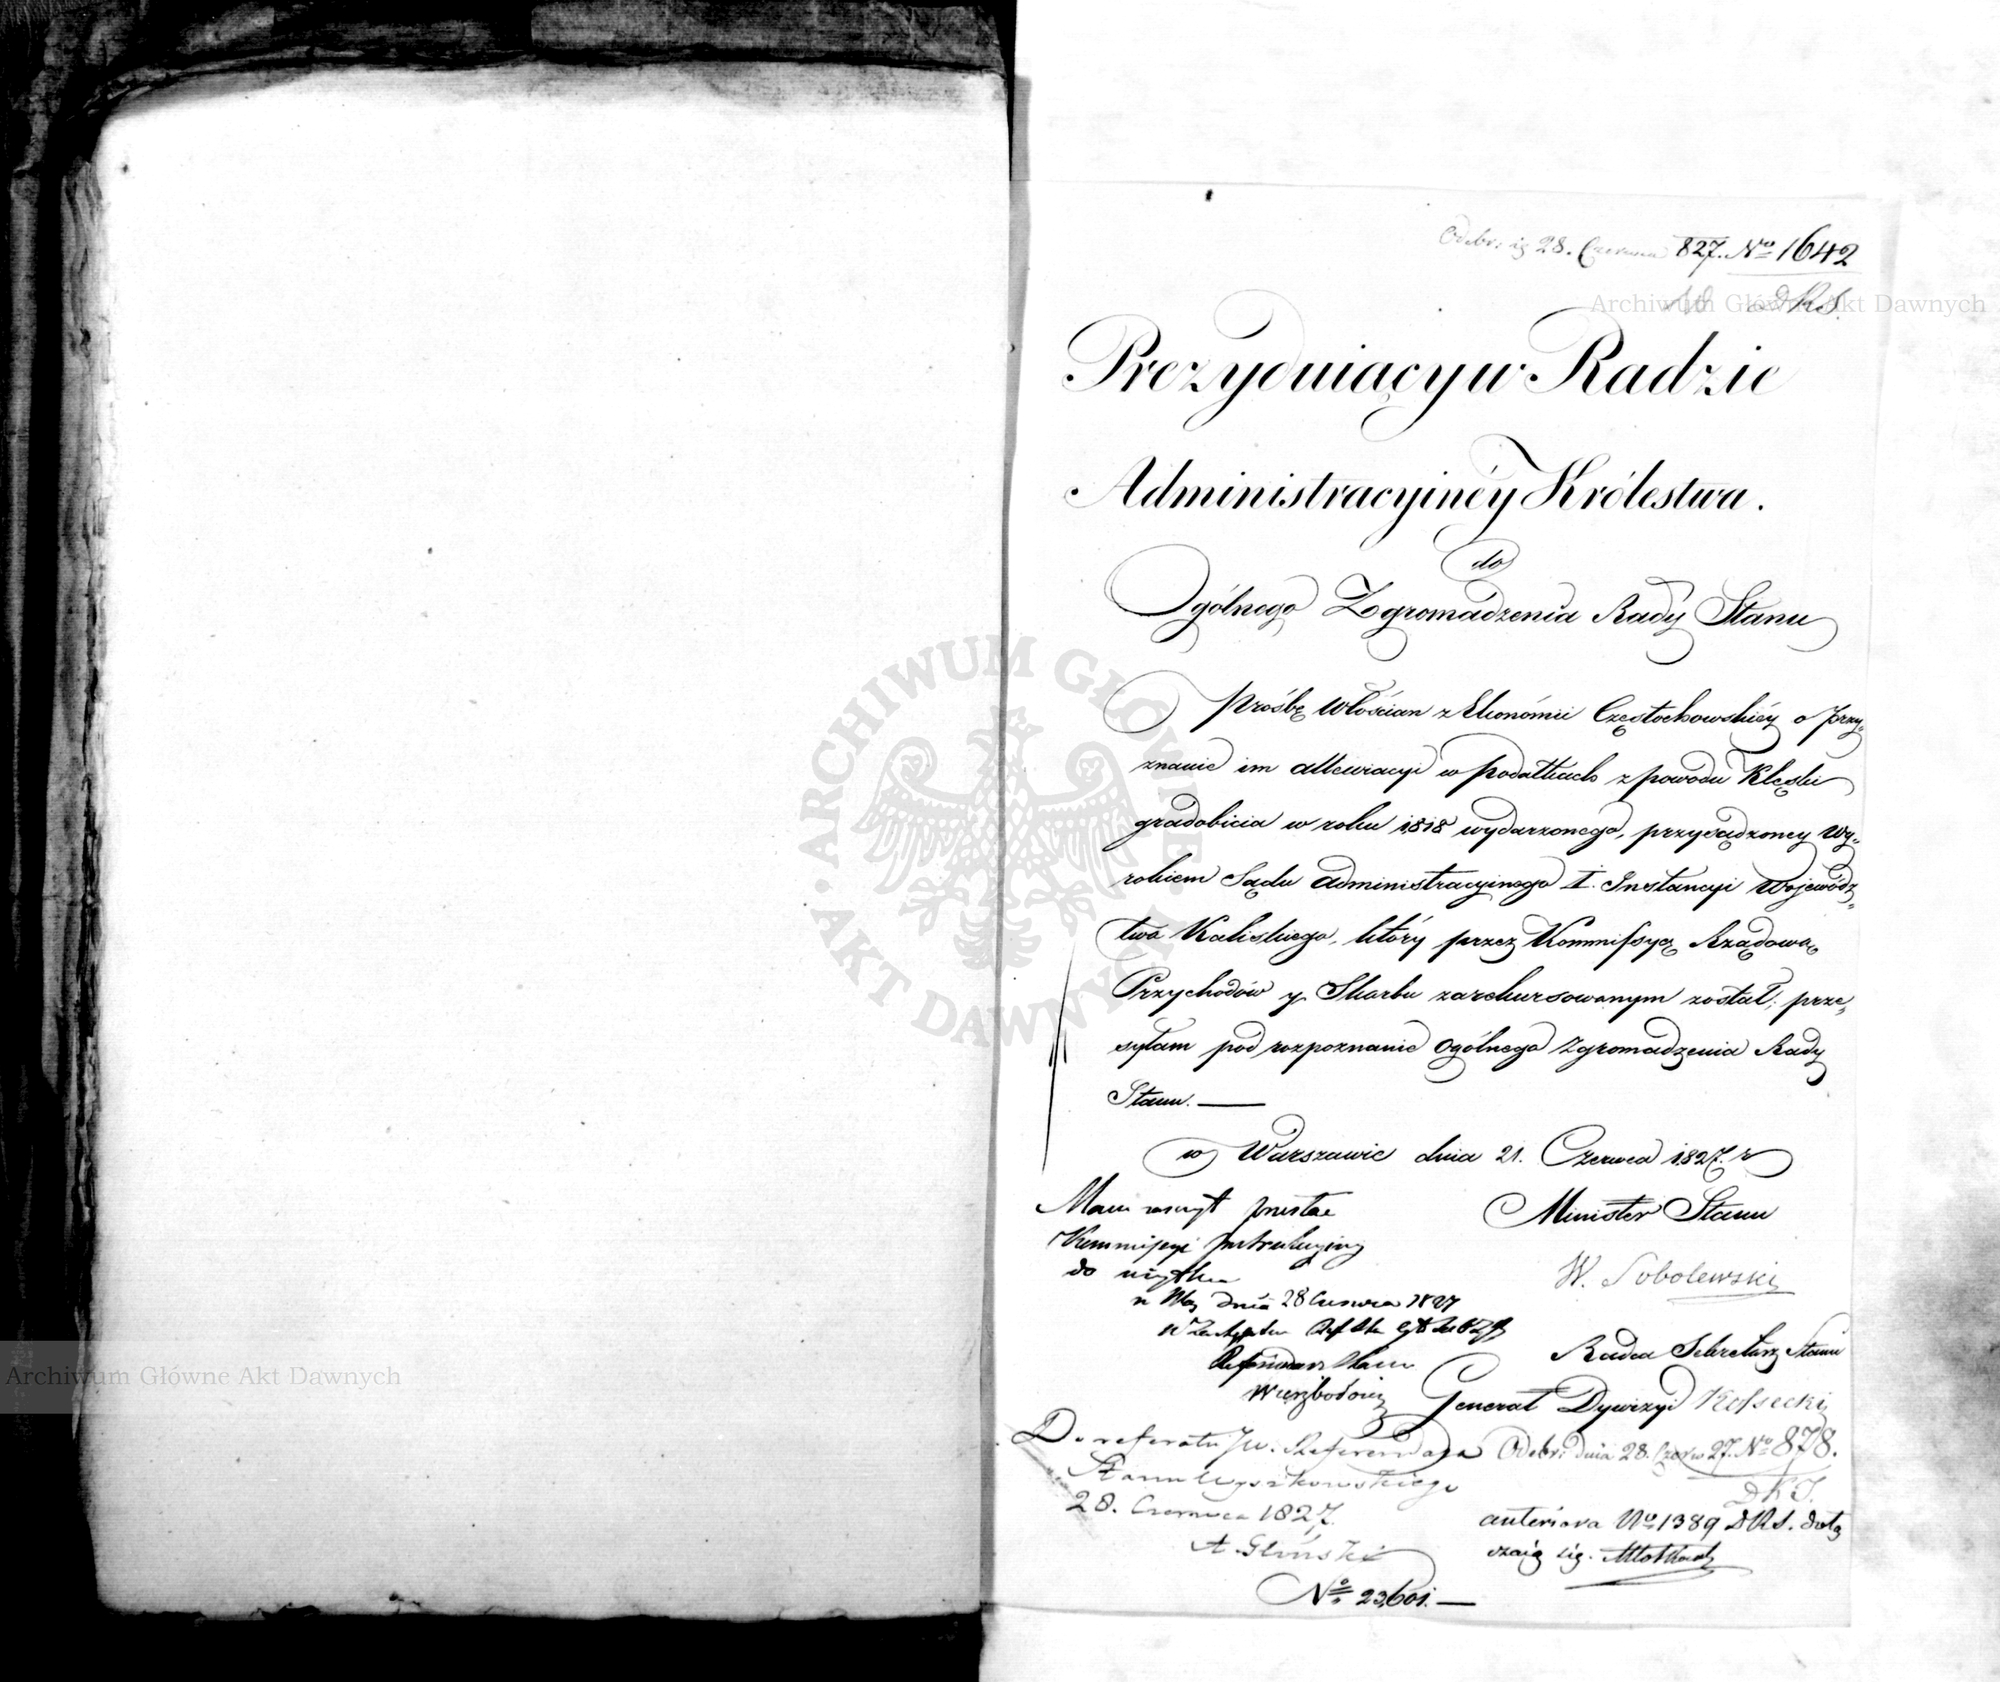 Odebr: ig 28. Czerwca 827. No 1642
DRS.
Prezyduiący w Radzie
Administracyinéy Królestwa.
do
Ogólnego Zgromadzenia Rady Stanu
Prośbę Włościan z Ekonómii Częstochowskiéy o przy-
znanie im allewiacyi w podatkach z powodu Klęski
gradobicia w roku 1818 wydarzonego, przysądzoney Wy-
rokiem Sądu Administracyinego I. Instancyi Wojewódz-
twa Kaliskiego, który przez Kommissyą Rządową
Przychodów y Skarbu zarekursowanym został; prze-
syłam pod rozpoznanie Ogólnego Zgromadzenia Rady
Stanu.
w Warszawie dnia 21. Czerwca 1827. r
Minister Stanu
W. Sobolewski
Radca Sekretarz Stanu
Generał Dywizyi Kossecki
Kommissyi Instrukcyiny
do użytku
dnia 28 Czerwca 1827
Referendarz Stanu
Do referatu JW. Referendarza
Stanu Wyszkowskiego
28. Czerwca 1827.
A. Gliński
Odebr: dnia 28. Czerw 27. No 878.
DKJ.
anteriora No 1389 DRS. dołą
czaią się.
No 23,601.
Archiwum Główne Akt Dawnych
Archiwum Główne Akt Dawnych
ARCHIWUM GŁÓWNE AKT DAWNYCH